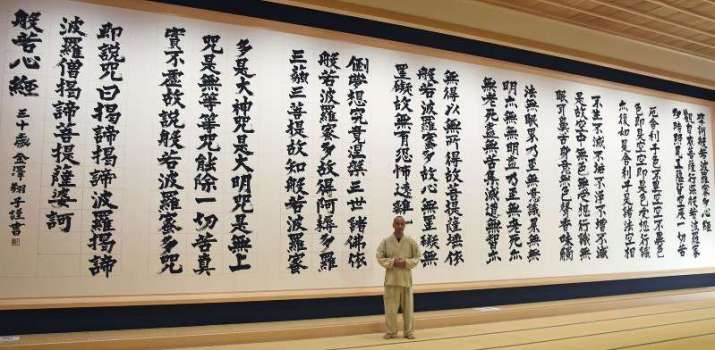 摩訶般若波羅蜜多心經
観自在菩薩行深般若波羅蜜
多時照見五蘊皆空度一切苦
厄舎利子色不異空空不異色
色即是空空即是色受想行識
亦復如是舎利子是諸法空相
不生不滅不垢不浄不増不減
是故空中無色無受想行識無
眼耳鼻舌身意無色声香味觸
法無眼界乃至無意識界無無
明亦無無明盡乃至無老死亦
無老死盡無苦集滅道無智亦
無得以無所得故菩提薩埵依
般若波羅蜜多故心無罣礙無
罣礙故無有恐怖遠離一
倒夢想究竟涅槃三世諸佛依
般若波羅蜜多故得阿耨多羅
三藐三菩提故知般若波羅蜜
多是大神咒是大明咒是無上
咒是無等等咒能除一切苦真
實不虚故説般若波羅蜜多咒
即説咒曰揭諦揭諦波羅揭諦
波羅僧揭諦菩提薩婆訶
般若心經
三十歳 金澤翔子謹書